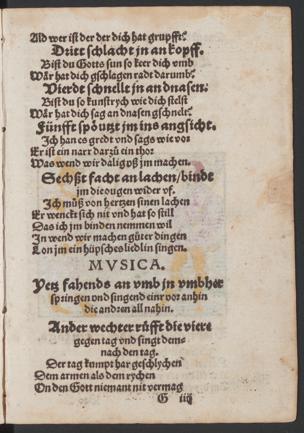 Ald wer ist der der dich hat grupfft?
Dritt schlacht jn an kopff.
Bist du Gotts sun so keer dich vmb
Wår hat dich gschlagen radt darumb?
Vierde schnellt jn an dnasen.
Bist du so kunstrych wie dich stelst
Wår hat dich sag an dnasen gschnelt?
Fünfft spöutzt jm ins angsicht.
Ich han es gredt vnd sags wie vor
Er ist ein narr darzů ein thor
Was wend wir dalig pß jm machen.
Sechßt facht an lachen/ binde
jm die ougen wider vf.
Ich můß von hertzen sinen lachen
Er wenckt sich nit vnd hat so still
Das ich jm binden nemmen wil
In wend wir machen gůter dingen
Lon jm ein hüpsches liedlin singen.
MVSICA.
Yetz fahends an vmb jn vmbher
springen vnd singend einr vor anhin
die andren all nahin.
Ander wechter rüfft die viere
gegen tag vnd singt dem-
nach den tag.
Der tag kumpt har geschlychen
Dem armen als dem rychen
On den Gott niemant nit vermag
G iiij